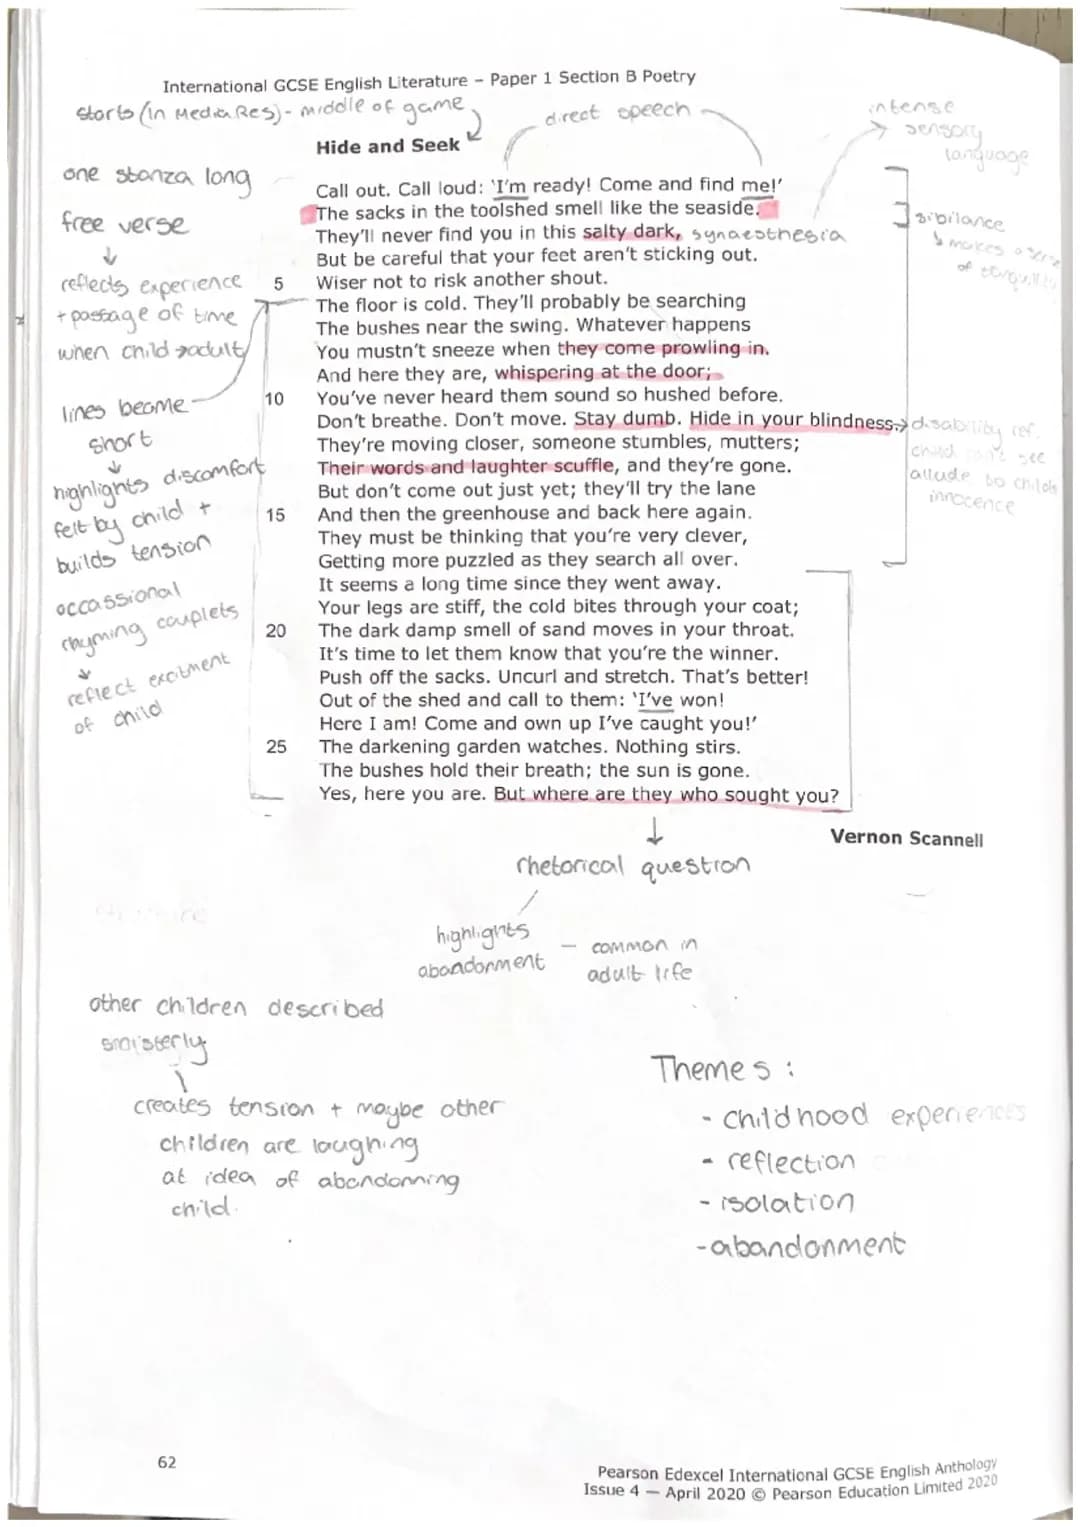 International GCSE English Literature – Paper 1 Section B Poetry
starts (in Media Res) - middle of game
direct speech
intense
sensory
language
Hide and Seek
one stanza long
free verse
reflects experience
+ passage of time
when child → adult
lines become
short
highlights discomfort
felt by child +
builds tension
occassional
rhyming couplets
reflect excitment
of child
Call out. Call loud: 'I'm ready! Come and find me!'
The sacks in the toolshed smell like the seaside.
They'll never find you in this salty dark, synaesthesia
But be careful that your feet aren't sticking out.
5 Wiser not to risk another shout.
The floor is cold. They'll probably be searching
The bushes near the swing. Whatever happens
You mustn't sneeze when they come prowling in.
And here they are, whispering at the door;
10 You've never heard them sound so hushed before.
Don't breathe. Don't move. Stay dumb. Hide in your blindness.
They're moving closer, someone stumbles, mutters;
Their words and laughter scuffle, and they're gone.
But don't come out just yet; they'll try the lane
15 And then the greenhouse and back here again.
They must be thinking that you're very clever,
Getting more puzzled as they search all over.
It seems a long time since they went away.
Your legs are stiff, the cold bites through your coat;
20 The dark damp smell of sand moves in your throat.
It's time to let them know that you're the winner.
Push off the sacks. Uncurl and stretch. That's better!
Out of the shed and call to them: 'I've won!
Here I am! Come and own up I've caught you!'
25 The darkening garden watches. Nothing stirs.
The bushes hold their breath; the sun is gone.
Yes, here you are. But where are they who sought you?
sibilance
makes a sense
of tranquility
disability ref.
child can't see
allude to childs
innocence
Vernon Scannell
rhetorical question
highlights
abandonment
– common in
adult life
other children described
sinisterly
creates tension + maybe other
children are laughing
at idea of abandonning
child.
Themes :
- childhood experiences
- reflection
- isolation
- abandonment
62
Pearson Edexcel International GCSE English Anthology
Issue 4 — April 2020 © Pearson Education Limited 2020